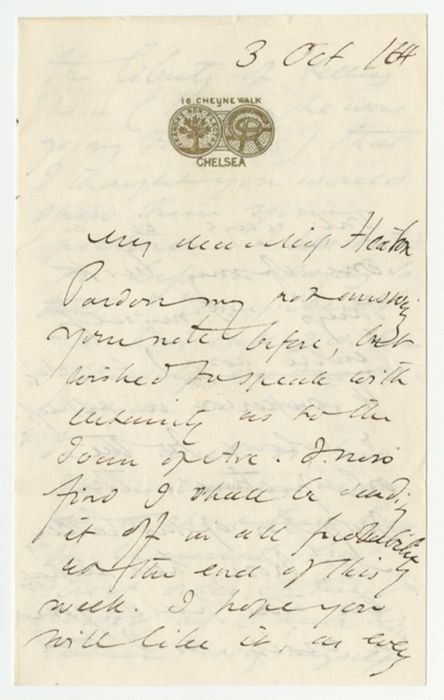 3 Oct /64
16. CHEYNE WALK
CHELSEA
My dear Miss Heaton
Pardon my not answering
your note before, but
wished to speak with
certainty as to the
Joan of Arc. I now
find I shall be sending
it off in all probability
at the end of this
week. I hope you
will like it, as every